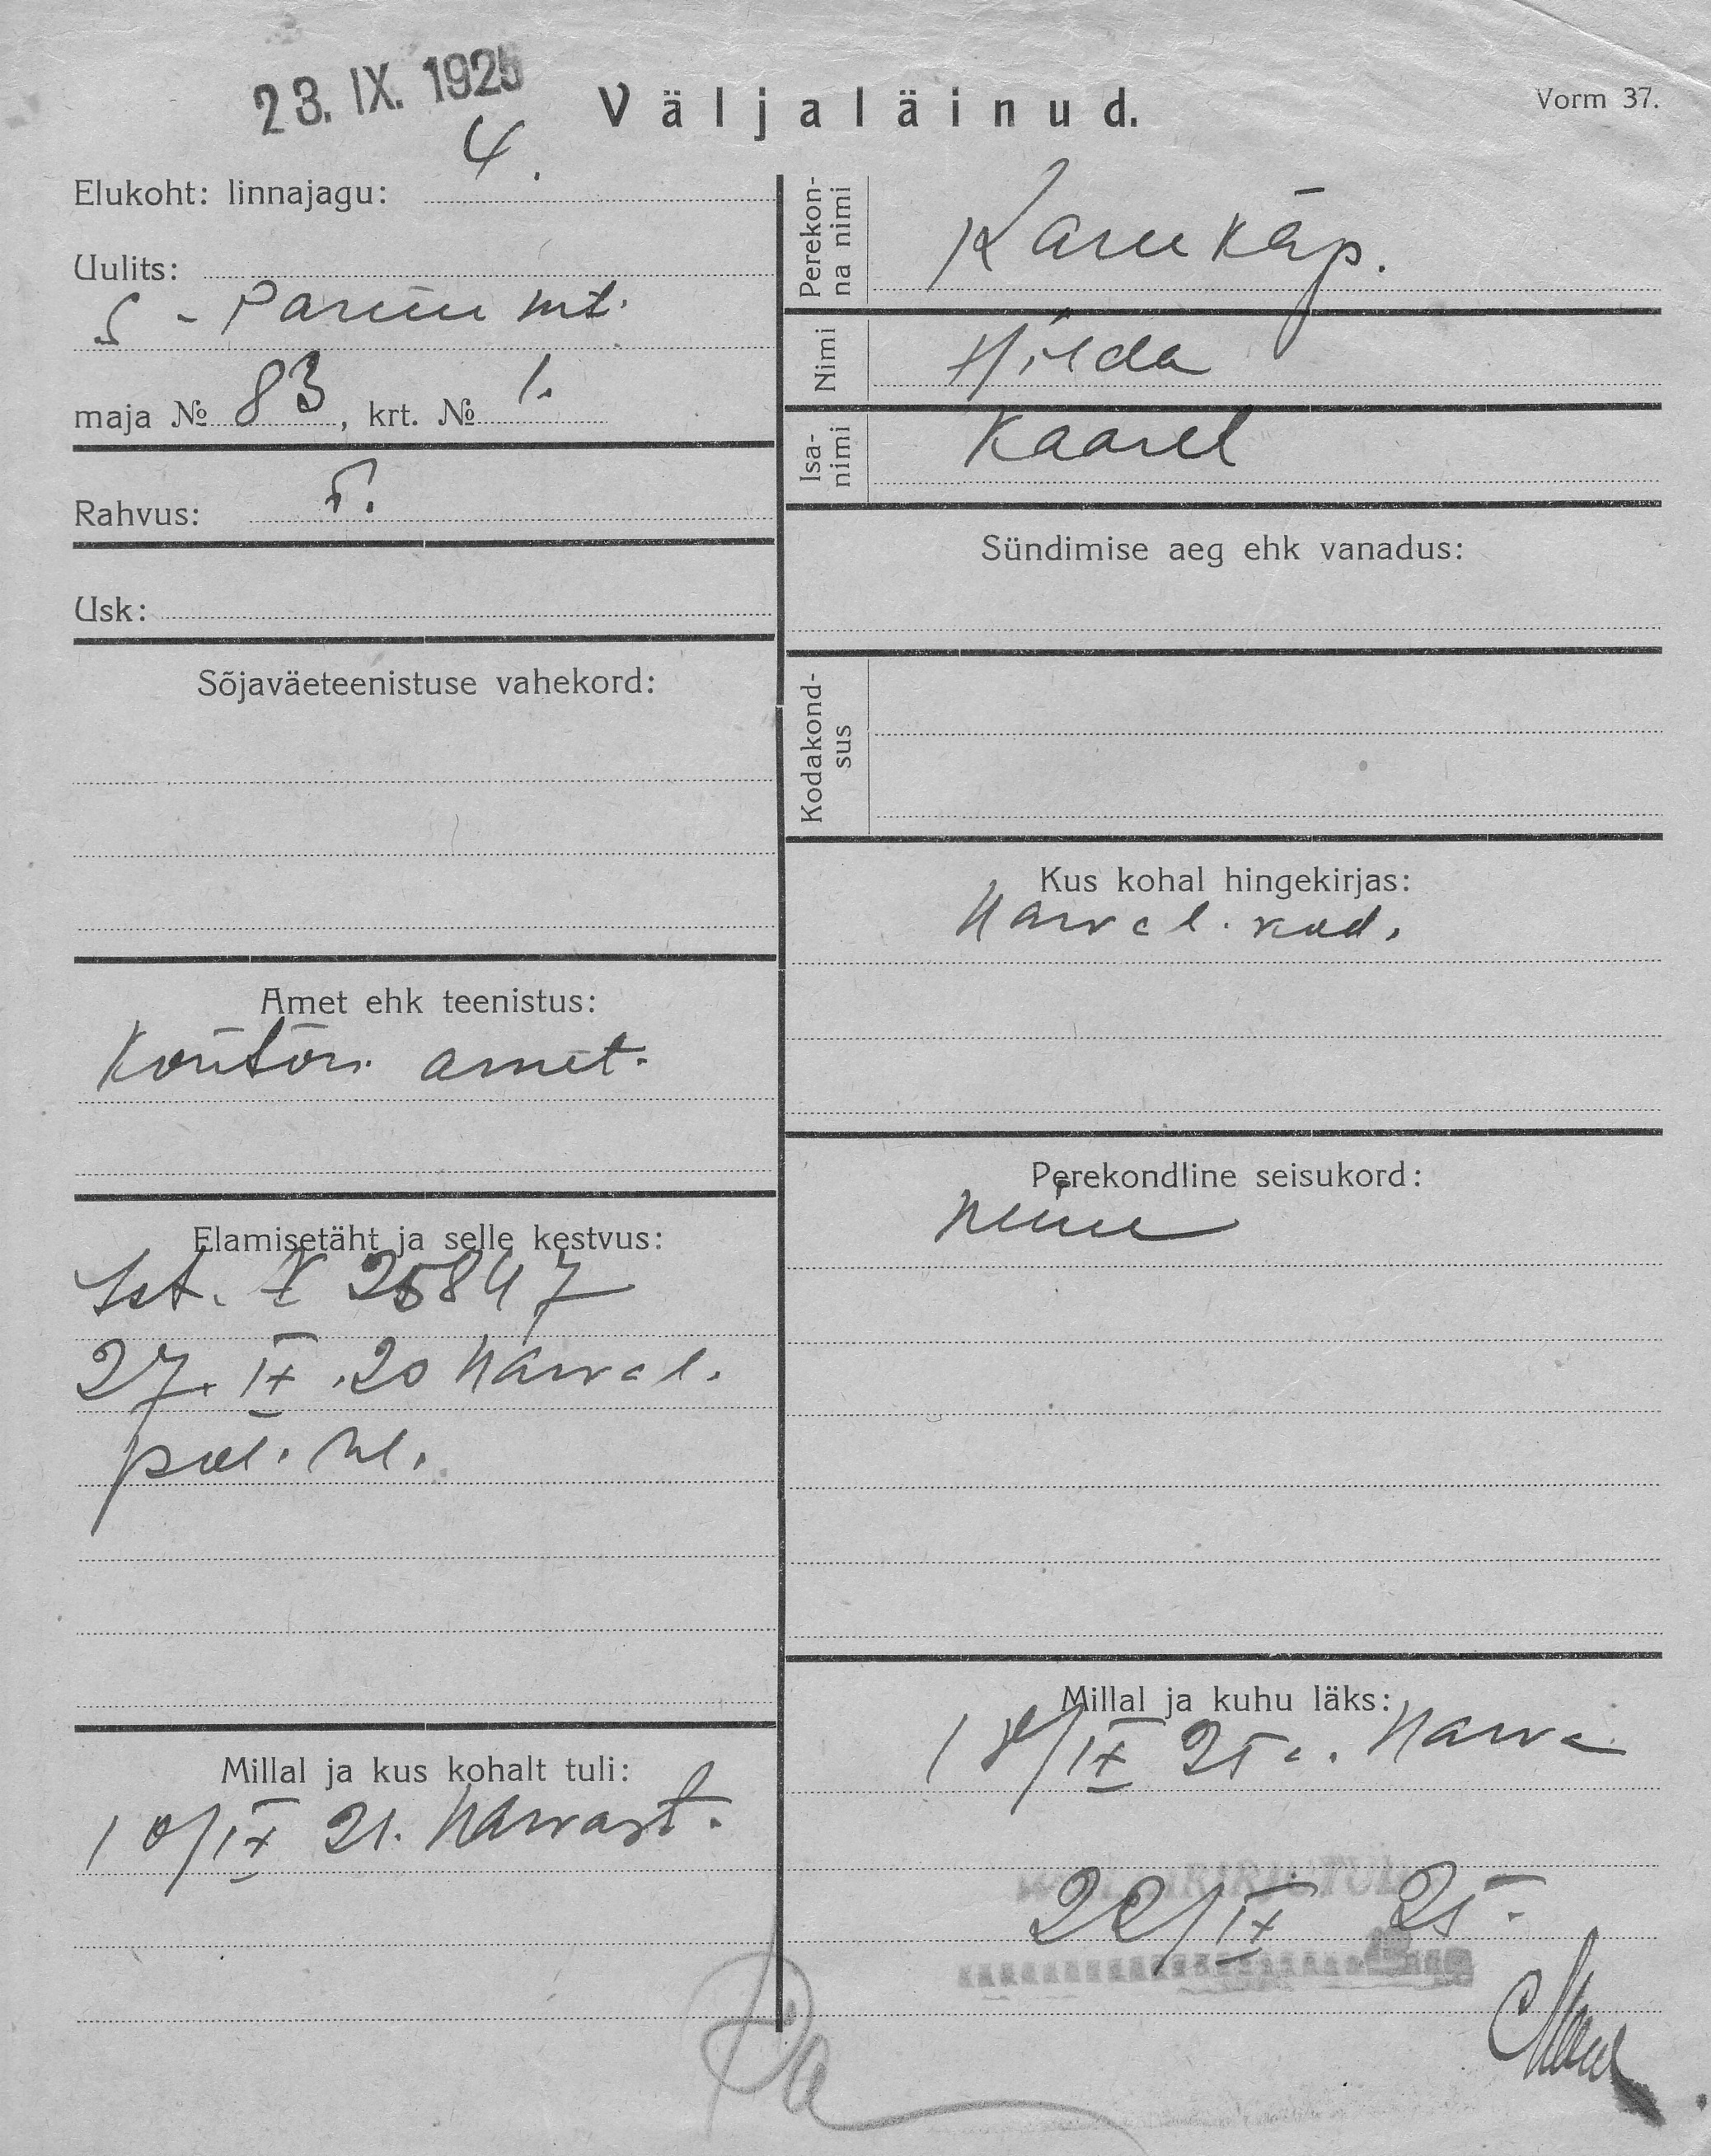 23. IX. 1925
Väljaläinud.
Vorm 37.
Elukoht: linnajagu: 4.
Uulits:
S-Pärnu mt.
maja № 83, krt. № 1.
Rahvus:
Usk:
Sõjaväeteenistuse vahekord:
Amet ehk teenistus:
Kontori amet.
Elamisetäht ja selle kestvus:
Ist. № 25847
27. IX. 20 Narva l.
pol. ül.
Millal ja kus kohalt tuli:
10/IX 21. Narvast.
Perekon-
na nimi
Karukäp.
Nimi
Hilda
Isa-
nimi
Kaarel
Sündimise aeg ehk vanadus:
Kodakond-
sus
Kus kohal hingekirjas:
Narva l. kod.
Perekondline seisukord:
Millal ja kuhu läks:
18/IX 25 a. Narva
22/IX 25.